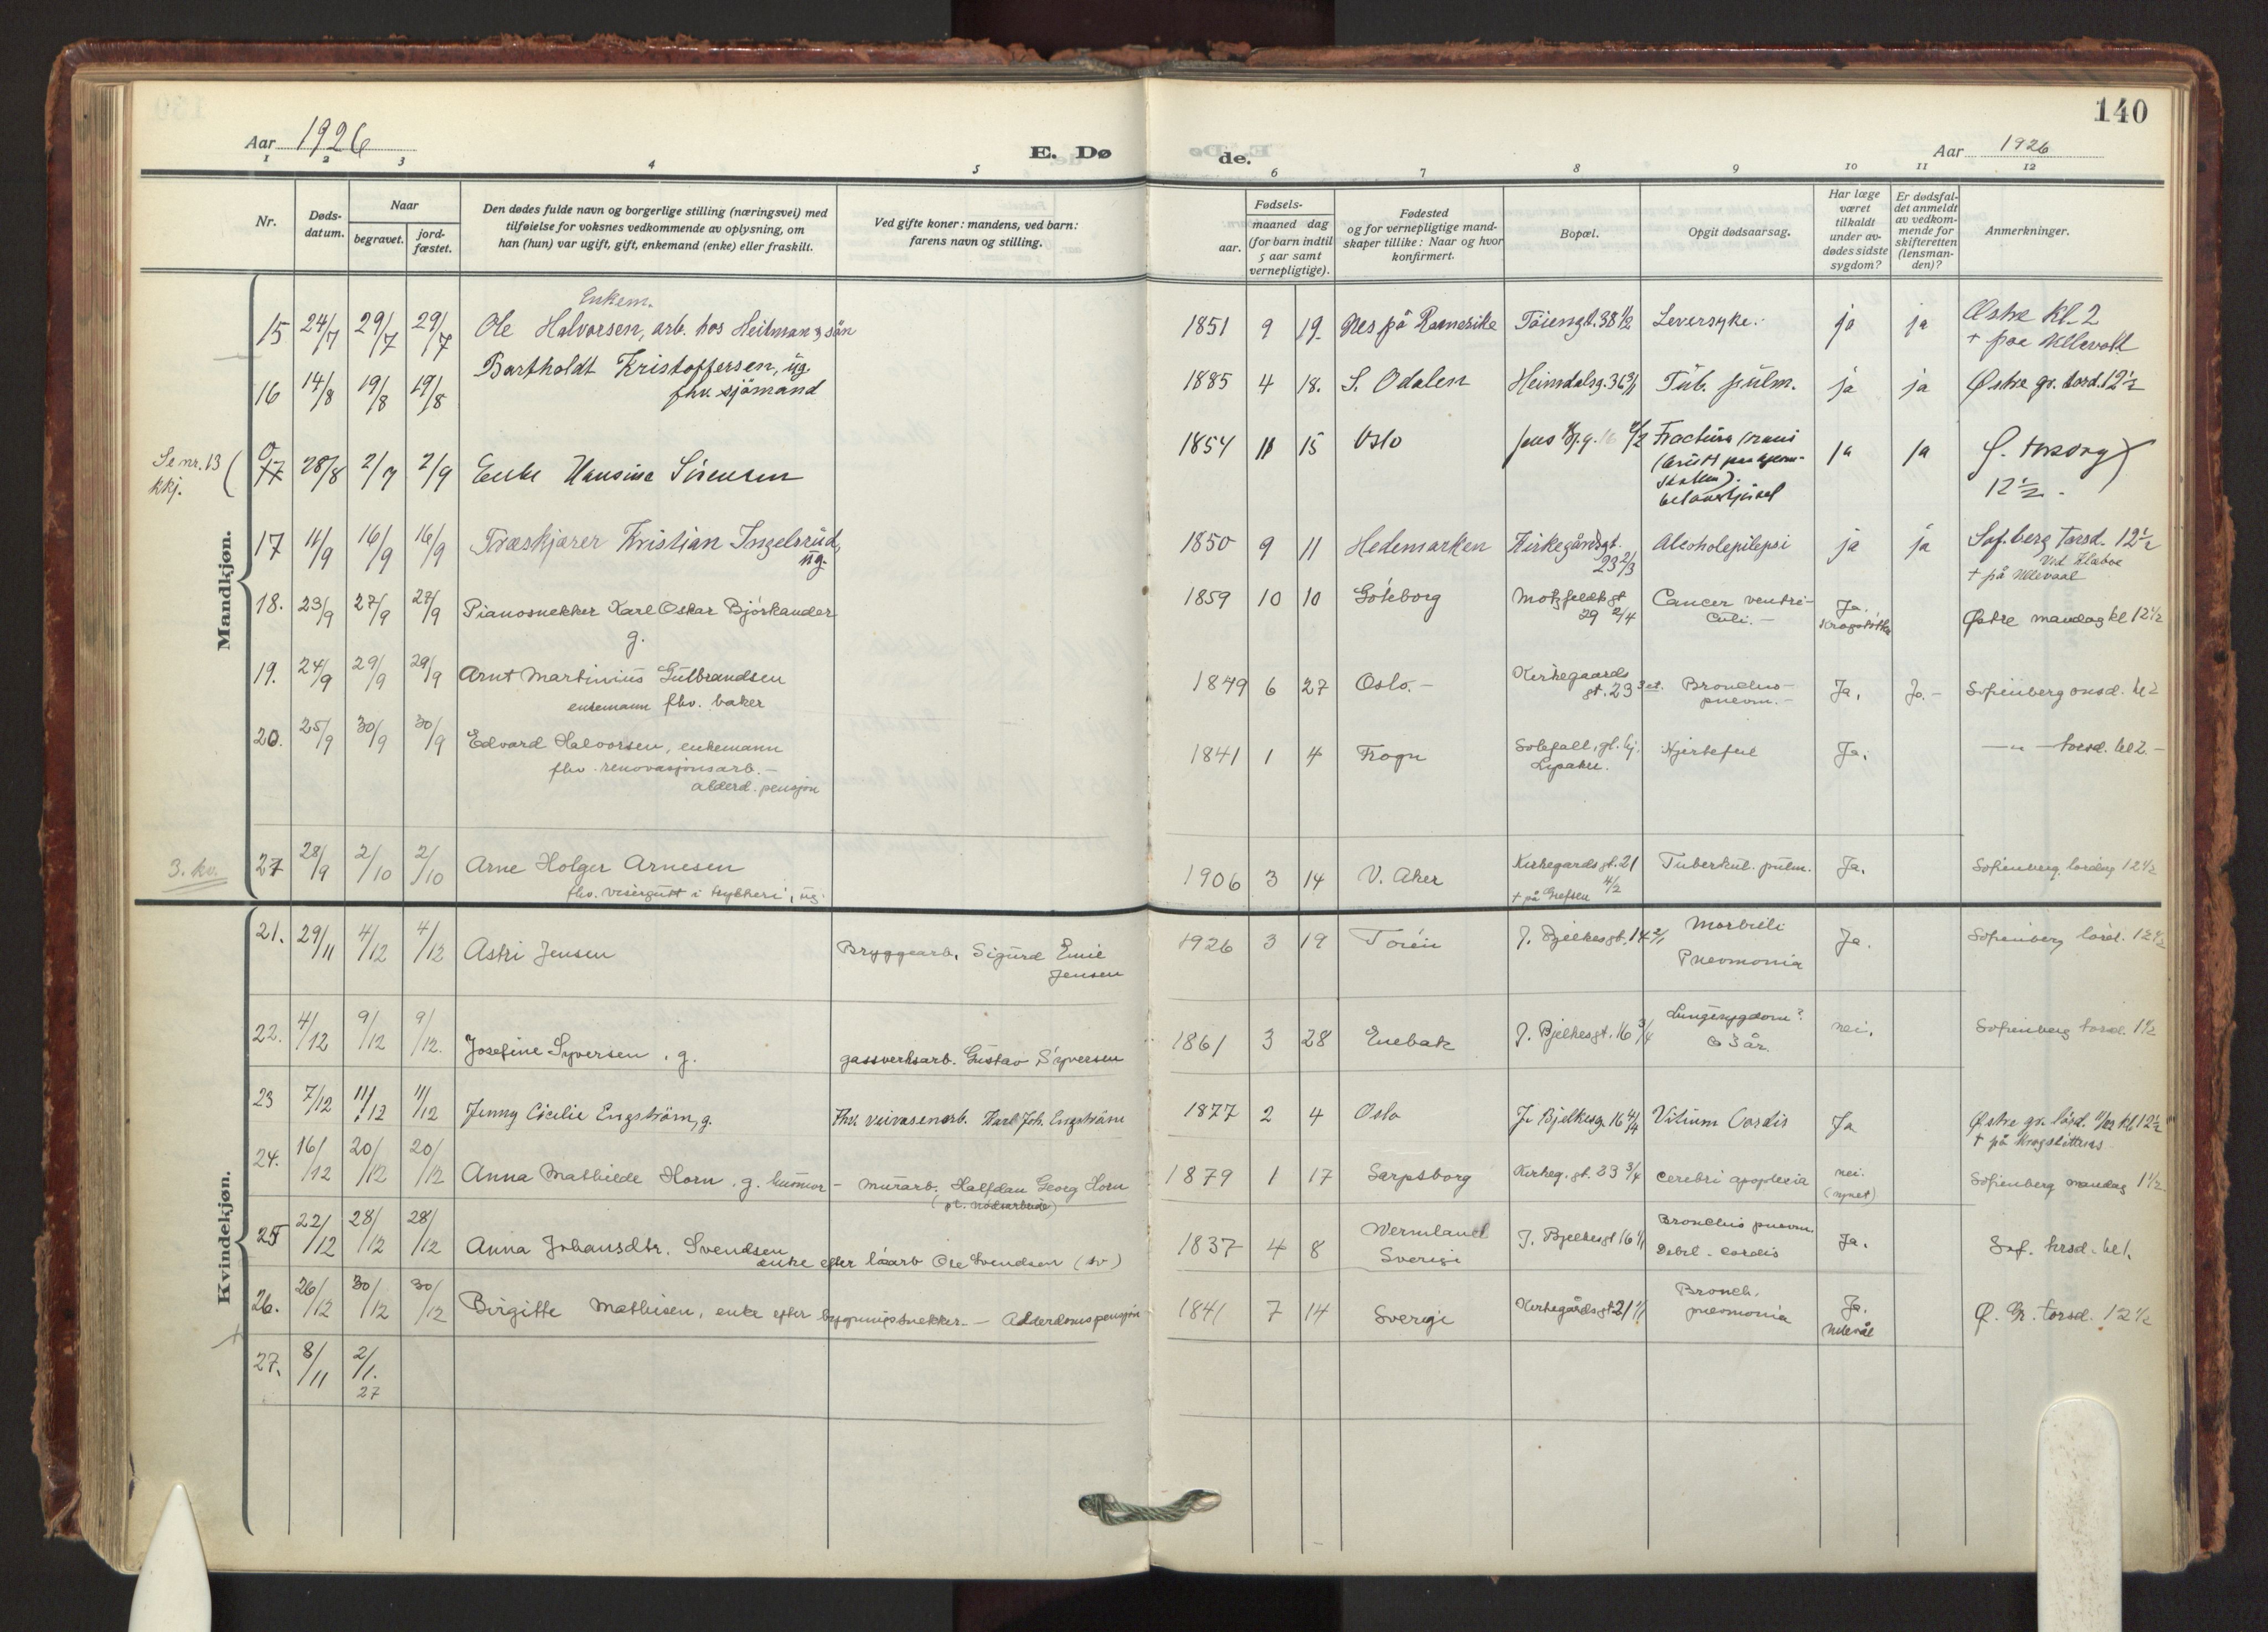 140
Aar 1926
E. Døde.
Aar 1926
1 2 3 4 5 6 7 8 9 10 11 12
Nr.
Døds-datum.
Naar
begravet.
jord-fæstet.
Den dødes fulde navn og borgerlige stilling (næringsvei) med
tilføielse for voksnes vedkommende av oplysning, om
han (hun) var ugift, gift, enkemand (enke) eller fraskilt.
Ved gifte koner: mandens, ved barn:
farens navn og stilling.
Fødsels-
aar.
maaned dag
(for barn indtil
5 aar samt
vernepligtige).
Fødested
og for vernepligtige mand-
skaper tillike: Naar og hvor
konfirmert.
Bopæl.
Opgit dødsaarsag.
Har læge
været
tilkaldt
under av-
dødes sidste
sygdom?
Er dødsfal-
det anmeldt
av vedkom-
mende for
skifteretten
(lensman-
den)?
Anmerkninger.
Mandkjøn.
15 24/7 29/7 29/7 Enkem. Ole Halvorsen, arb. hos Heitman & sön 1851 9 19. Nes på Romerike Töiengt. 38 1/2 Leversyke. ja ja Østre Kl. 2
+ paa Ullevold
16 14/8 19/8 19/8 Bartholdt Kristoffersen, ug. 1885 4 18. S. Odalen Heimdalsg. 36 Tub. pulm. ja ja Østre gr. torsd. 12 1/2
fhv. sjömand
Se nr. 13
kkj.
17 28/8 2/9 2/9 Enke Hansine Sörensen 1854 11 15 Oslo Fractura cranii ja ja
12 1/2.
17 11/9 16/9 16/9 Træskjærer Kristian Ingelsrud, 1850 9 11 Hedemarken Kirkegårdsgt. Alcoholepilepsi ja ja Sof.berg Torsd. 12 1/2
ug. 23 2/3 + på Ullevaal
18. 23/9 27/9 27/9 Pianosnekker Karl Oskar Björkander 1859 10 10 Göteborg Motzfeldts gt Cancer ventri- Ja. Østre mandag kl 12 1/2
g. 29 2/4 culi. -
19. 24/9 29/9 29/9 Arnt Martinius Gulbrandsen 1849 6 27 Oslo. - Kirkegaards Broncho- Ja. Ja. - Sofienberg onsd. kl 2
enkemann fhv. baker gt. 23 3 et. pneum. -
20. 25/9 30/9 30/9 Edvard Halvorsen, enkemann 1841 1 4 Frogn Solefall, gl. hj. Hjertefeil Ja. — „ — torsd. kl 2. -
fhv. renovasjonsarb. -
alderd. pensjon
3. kv.
27 28/9 2/10 2/10 Arne Holger Arnesen 1906 3 14 V. Aker Kirkegards gt. 21 Tuberkul. pulm. Ja. Sofienberg lördag 12 1/2
fhv. visergutt i trykkeri, ug. + på Grefsen 4/2
Kvindekjøn.
21. 29/11 4/12 4/12 Astri Jensen Bryggearb. Sigurd Emil 1926 3 19 Töien J. Bjelkes gt. 14 2/1 Morbilli Ja. Sofienberg lörd. 12 1/2
Jensen Pneomonia
22. 4/12 9/12 9/12. Josefine Syversen, g. gassverksarb. Gustav Syversen 1861 3 28 Enebak J. Bjelkesgt. 16 3/4 Lungesygdom? nei. Sofienberg torsd. 1 1/2
3 år.
23 7/12 11/12 11/12 Jenny Cicilie Engström, g. Fhv. veivæsenarb. Karl Joh. Engström 1877 2 4 Oslo J. Bjelkesg. 16 4/4 Vitium Cordis Ja Østre gr. lörd. kl 12 1/2
+ på Krogstöttens
24. 16/12 20/12 20/12 Anna Mathilde Horn, g. - murarb. Halfdan Georg Horn 1879 1 17 Sarpsborg Kirkeg. gt. 23 3/4 cerebri apoplexia nei. Sofienberg mandag 1 1/2
(pt. nödsarbeide)
25 22/12 28/12 28/12 Anna Johansdtr. Svendsen 1837 4 8 Vermland J. Bjelkesgt 16 Broncho pneum. Ja. Sof. tirsd. kl 1.
enke efter Ole Svendsen Sverige Debil. cordis
26. 26/12 30/12 30/12 Birgitte Mathisen, enke efter bygningssnekker. - Alderdomspensjon 1841 7 14 Sverige Kirkegårdsgt 21 Bronch. Ja. Ø. Gr. torsd. 12 1/2
pneomonia Ullevål
27. 8/11 2/1.
27